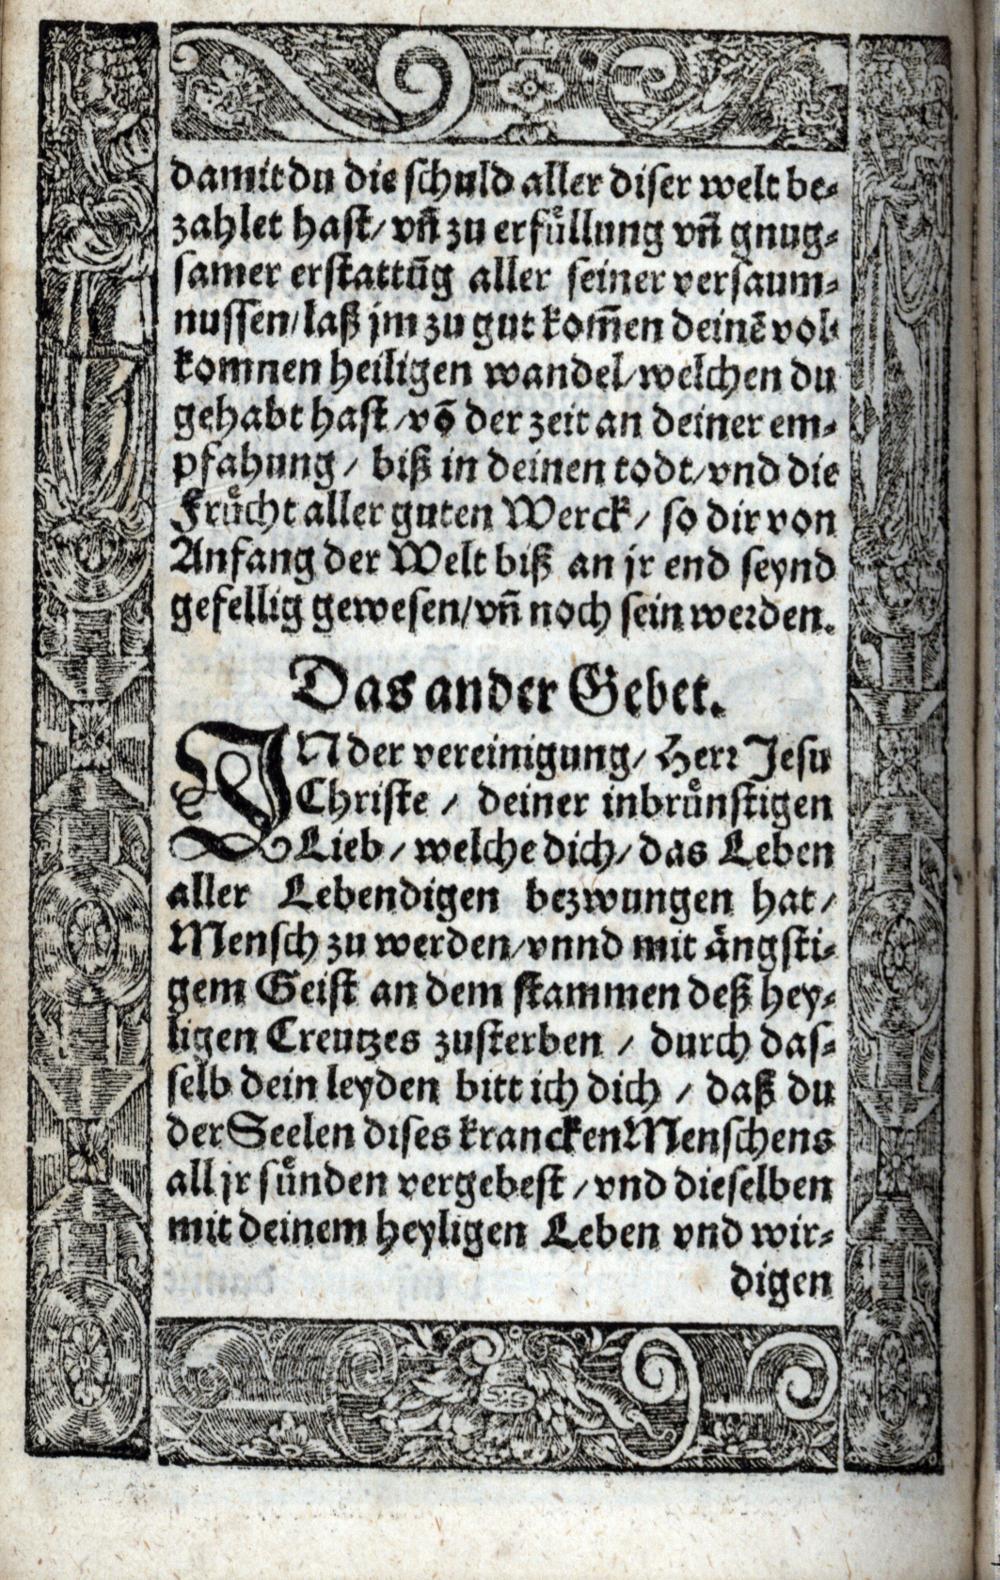 damit du die schuld aller diser welt be-
zahlet hast/ vñ zu erfuͤllung vñ gnug-
samer erstattūg aller seiner versaum-
nussen/ laß jm zu gut kom̄en deinē vol-
komnen heiligen wandel/ welchen du
gehabt hast/ vō der zeit an deiner em-
pfahung/ biß in deinen todt/ vnd die
Fruͤcht aller guten Werck/ so dir von
Anfang der Welt biß an jr end seynd
gefellig gewesen/ vñ noch sein werden.
Das ander Gebet.
IN der vereinigung/ Herr Jesu
Christe/ deiner inbruͤnstigen
Lieb/ welche dich/ das Leben
aller Lebendigen bezwungen hat/
Mensch zu werden/ vnnd mit aͤngsti-
gem Geist an dem stammen deß hey-
ligen Creutzes zusterben/ durch das-
selb dein leyden bitt ich dich/ daß du
der Seelen dises krancken Menschens
all jr suͤnden vergebest/ vnd dieselben
mit deinem heyligen Leben vnd wir-
digen